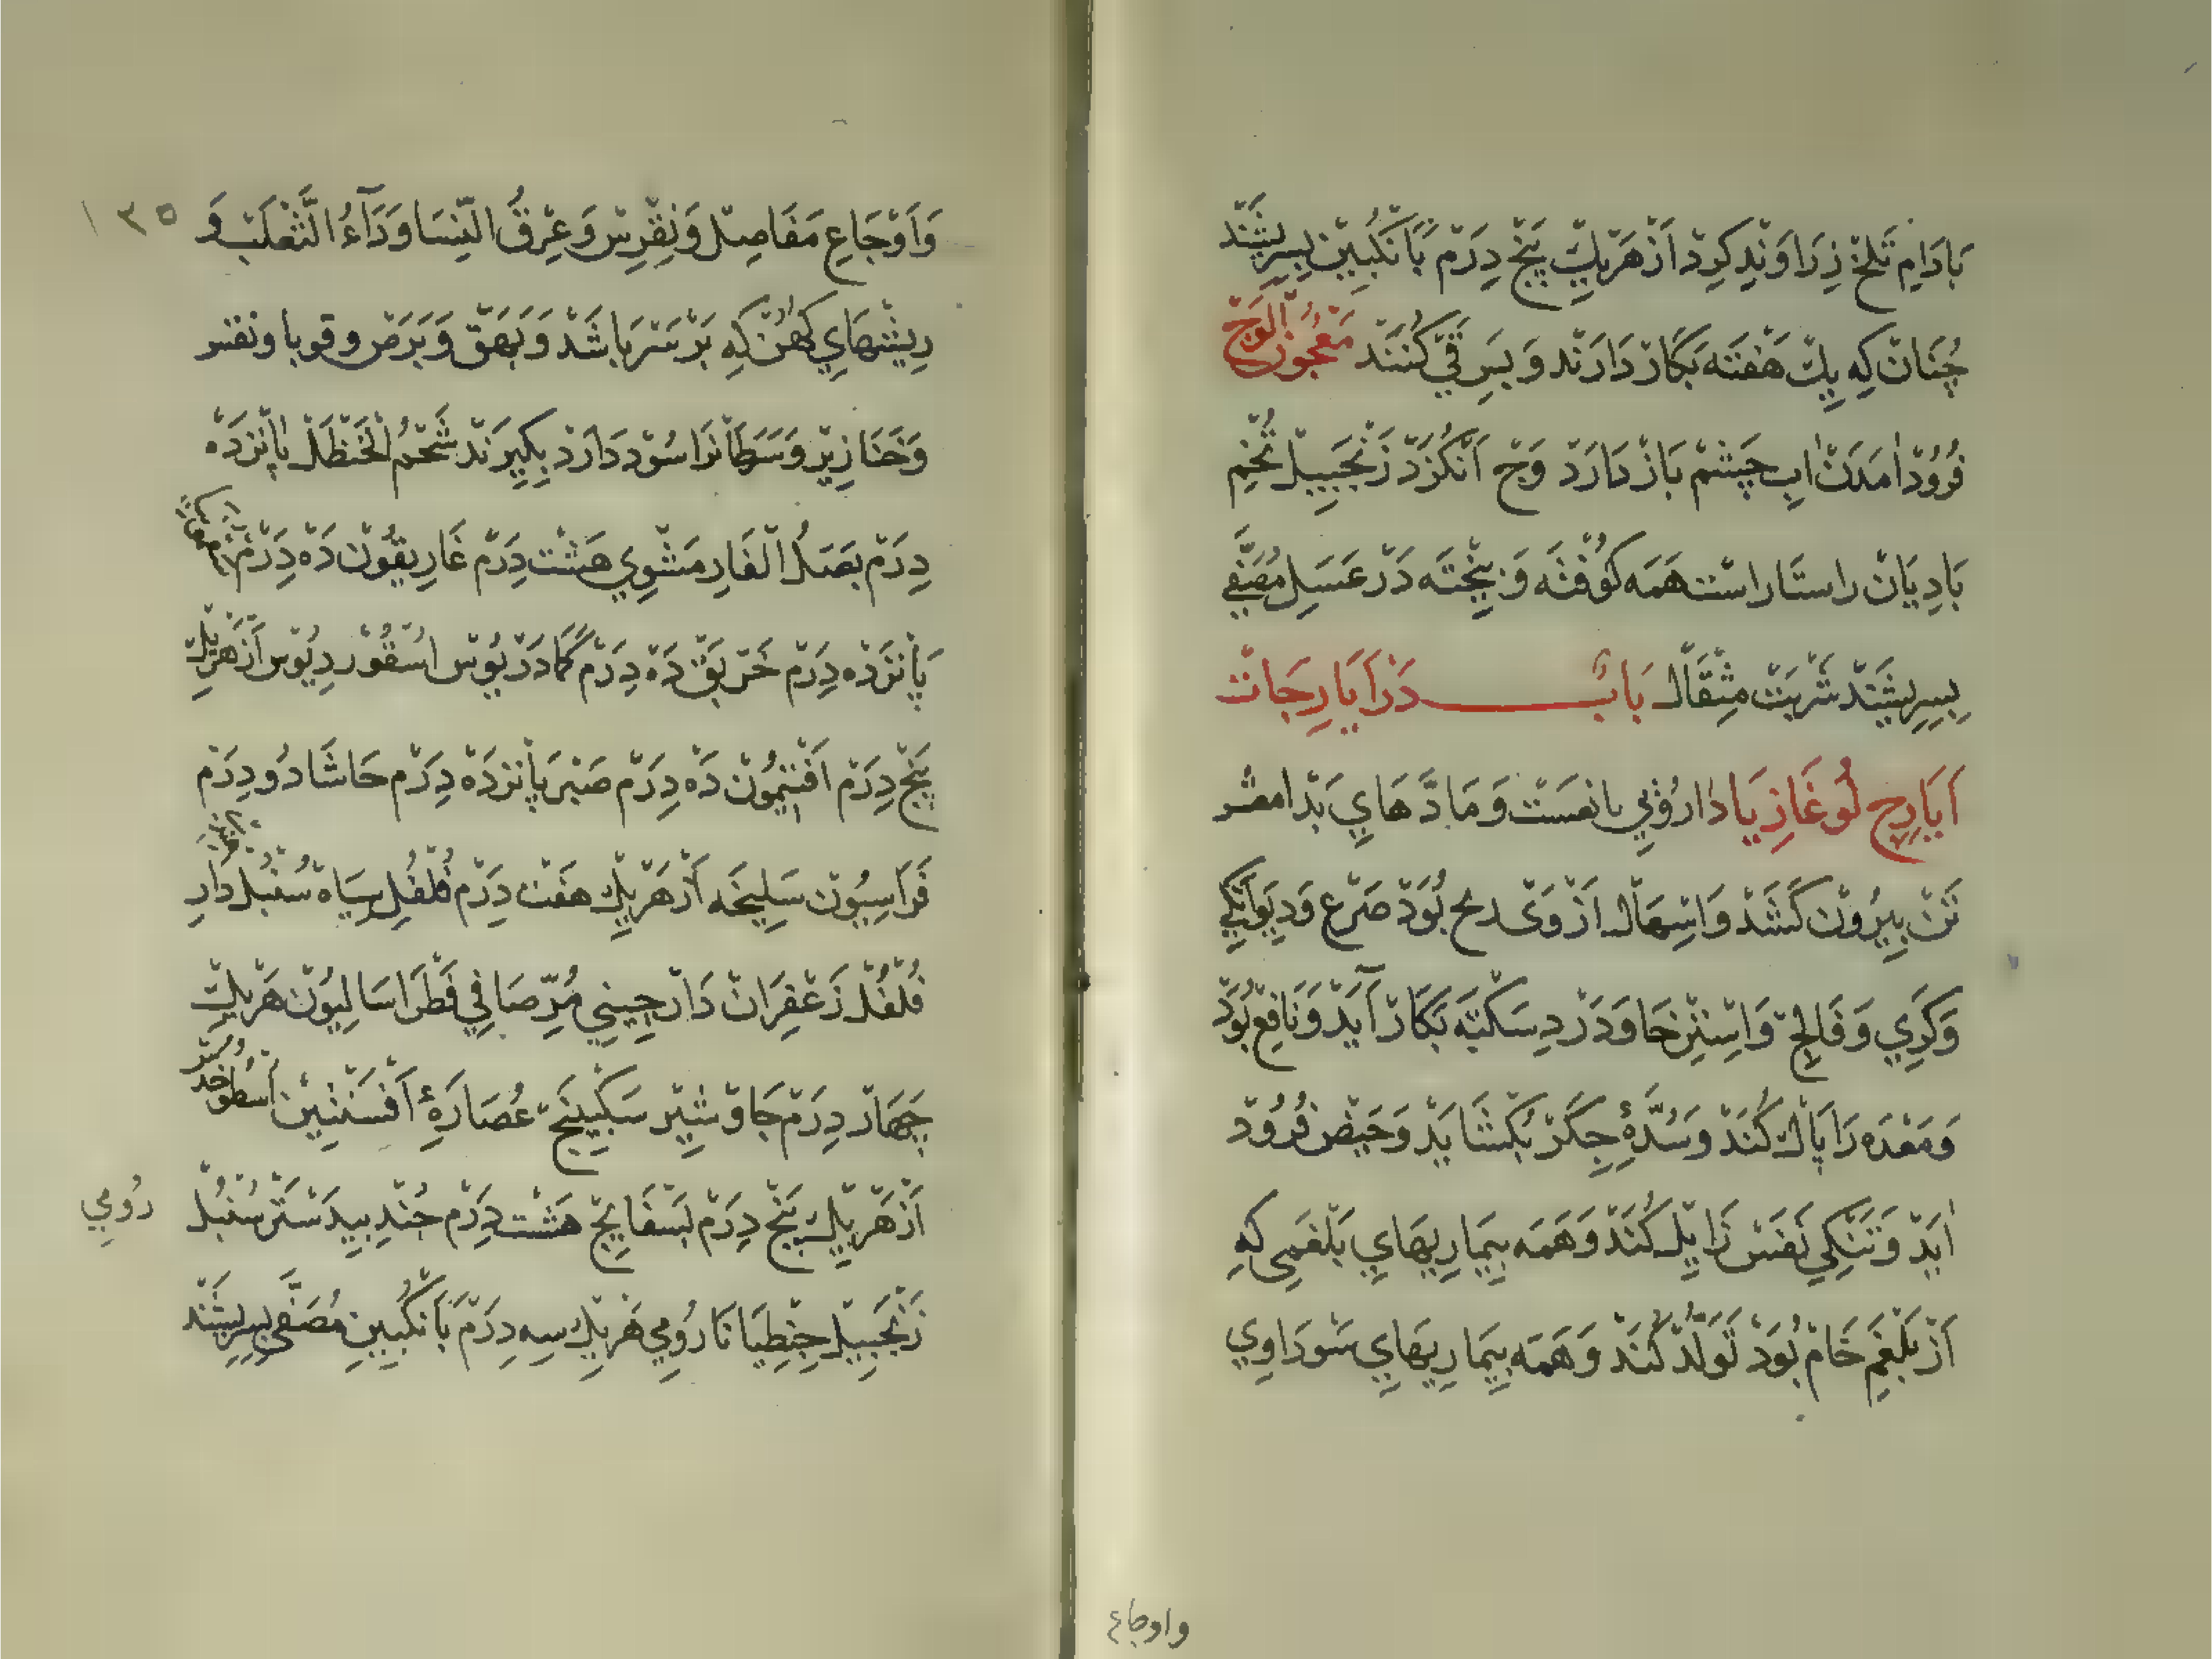 بَادَامِ تَلخ زِرَاوَندِ كِرد اَزهَريِكِ پَنج دِرَم بَاَنگبِين بِسِرِيشَند
چُنَان كِه يِك هَفتَه بَكار دَارَند وَ بَس قَي كُنَند مَعجُون اَلوَج
فُرُود اٰمَدَن اٰبِ چَشم بَاز دَارَد وَج اَنگُزَد زَنجَبِيل تُخمِ
بَادِيَان راستَاراست هَمَه كُوفتَه وَ بِيختَه دَر عَسَلِ مُصَفَّي
بِسِرِيشَند شَربَت مِثقَال بَاب دَر اَيَارِجَات
اَيَارِج لُوغَازِيَا دٰارُوُي بانعست وَ مَادَّهَايِ بَد
تَن بِيرُون كَشَد وَاِسهَال اَز وَى بُوَد صَرع وَ دِيوَانَگِي
وَكَرِي وَ فَالِج وَ اِستِرخَا وَ دَردِ سَكتَه بَكَار آيَد وَنَافِع بُوَد
وَمَعدَه رَا پَاك كُنَد وَ سُدَّهٔ جِگَر بُكشَايَد وَ حَيض فُرُود
اٰيَد وَ تَنگِيِ نَفَس زَايِل كُنَد وَ هَمَه بِيمَارِيهَايِ بَلغَمِي كِه
اَز بَلغَمِ خَام بُوَد تَوَلُّد كُنَد وَ هَمَه بِيمَارِيهَايِ سَودَاوِي
واوجاع
١٣٥
وَاَوجَاعِ مَفَاصِل وَ نِقرِس وَ عِرقُ النِّسَا وَ دَآءُ الثَّعلَب وَ
رِيشهَايِ كُهَن كِه بَر سَر بَاشَد وَ بَهَق وَ بَرَص و قوبا و
وَخَنَازِير وَ سَرَطَانرَا سُود دَارَد بِگِيرَند شَحمُ اَلحَنظَل پٰانزدَه
دِرَم بَصَلُ اَلفَارِ مَشوِي هَشت دِرَم غَارِيقُون دَه دِرَم
پَانزدَه دِرَم خَربَق دَه دِرَم كَمَادَريُوس اُسقُورديُوس اَزهَريِك
پَنج دِرَم اَفتِيمُون دَه دِرَم صَبر پَانزدَه دِرَم حَاشَا دُو دِرَم
فَرَاسِيُون سَلِيخَه اَزهَريِك هَفت دِرَم فُلفُلِ سِيَاه سُنبُل دَارِ
فُلفُل زَعفِرَان دَارچِينِي مُرِّ صَافِي فَطرَاسَالِيُون هَريِك
چَهَار دِرَم جَاوشِير سَكبِينَج عُصَارَهٔ اَفسَنتِين اُسطوخدوس
اَزهَريِك پَنج دِرَم بَسفَايِج هَشت دِرَم جُندِ بِيدَستَر سُنبُل
رُومِي
زَنجَبِيل جِنطِيَانَا رُومِي هَريِك سِه دِرَم بَاَنگبِينِ مُصَفَّي بِسِرِيشَند